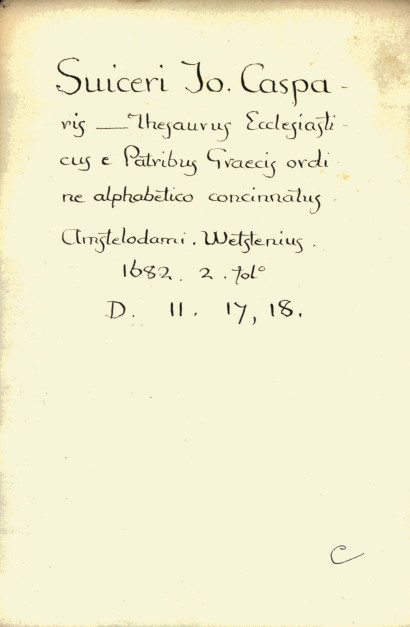 Suiceri Jo. Caspa-
ris — Thesaurus Ecclesiasti-
cus e Patribus Graecis ordi
ne alphabetico concinnatus.
Amstelodami. Wetstenius.
1682. 2. folº
D. 11. 17, 18.
C